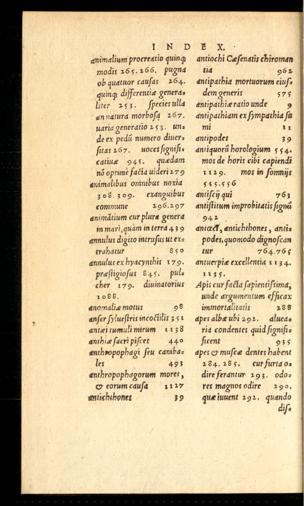 INDEX.
animalium procreatio quinq;
modis 265.266. pugna
ob quatuor causas 264.
quinq; differentiæ genera-
liter 253. species ulla
an natura morbosa 267.
uaria generatio 253. un-
de ex pedũ numero diuer-
sitas 267. uoces signifi-
catiuæ 945. quædam
nõ optimè facta uideri 279
animalibus omnibus noxia
308.309. exanguibus
commune 296.297
animãtium cur plura genera
in mari, quàm in terra 439
annulus digito intrusus ut ex-
trahatur 850
annulus ex hyacyntho 179.
præstigiosus 845. pul-
cher 179. diuinatorius
1088.
anomaliæ motus 98
anser syluestris incoctilis 351
antæi tumuli mirum 1138
anthiæ sacri pisces 440
anthropophagi seu caniba-
les 493
anthropophagorum mores,
& eorum causa 1127
antichthones 39
antiochi Cæsenatis chiroman
tia 962
antipathia mortuorum eius-
dem generis 575
antipathiæ ratio unde 9
antipathiam ex sympathia fa
mi 11
antipodes 39
antiquorũ horologium 554.
mos de horis cibi capiendi
1129. mos in somnijs
555.556
antiscij qui 763
antistitum improbitatis signũ
942
antœci, antichthones, anti-
podes, quomodo dignoscan
tur 764.765
antuerpiæ excellentia 1134.
1135.
Apis cur facta sapientissima,
unde argumentum efficax
immortalitatis 288
apes albæ ubi 292. aluea-
ria condentes quid signifi-
ficent 935
apes & muscæ dentes habent
284.285. cur furta o-
dire ferantur 293. odo-
res magnos odire 290.
quæ iuuent 292. quando
dis-